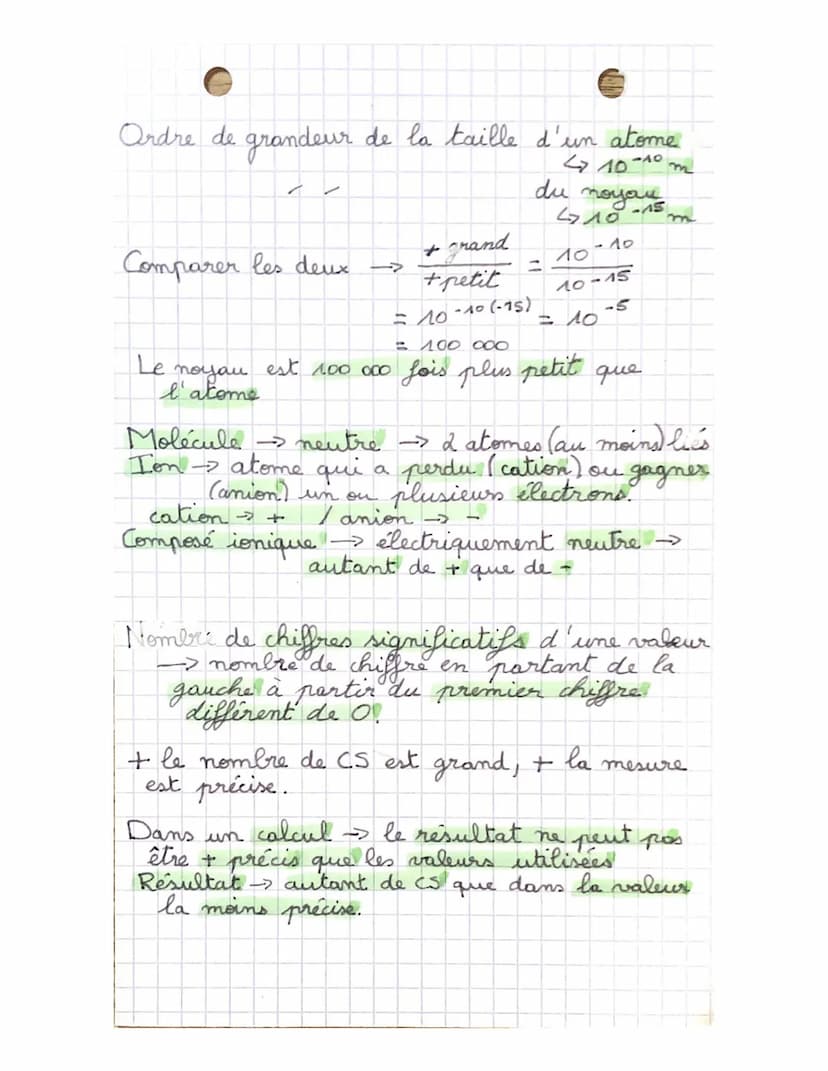 Ordre de grandeur de la taille d'un atome
↳ 10⁻¹⁰ m
〃 du noyau
↳ 10⁻¹⁵ m
Comparer les deux → + grand / + petit = 10⁻¹⁰ / 10⁻¹⁵
= 10⁻¹⁰⁽⁻¹⁵⁾ = 10⁻⁵
= 100 000
Le noyau est 100 000 fois plus petit que
l'atome
Molécule → neutre → 2 atomes (au moins) liés
Ion → atome qui a perdu (cation) ou gagner
(anion) un ou plusieurs électrons.
cation → + / anion → -
Composé ionique → électriquement neutre →
autant de + que de -
Nombre de chiffres significatifs d'une valeur
→ nombre de chiffre en partant de la
gauche à partir du premier chiffre
différent de 0.
+ le nombre de CS est grand, + la mesure
est précise.
Dans un calcul → le résultat ne peut pas
être + précis que les valeurs utilisées
Résultat → autant de CS que dans la valeur
la moins précise.